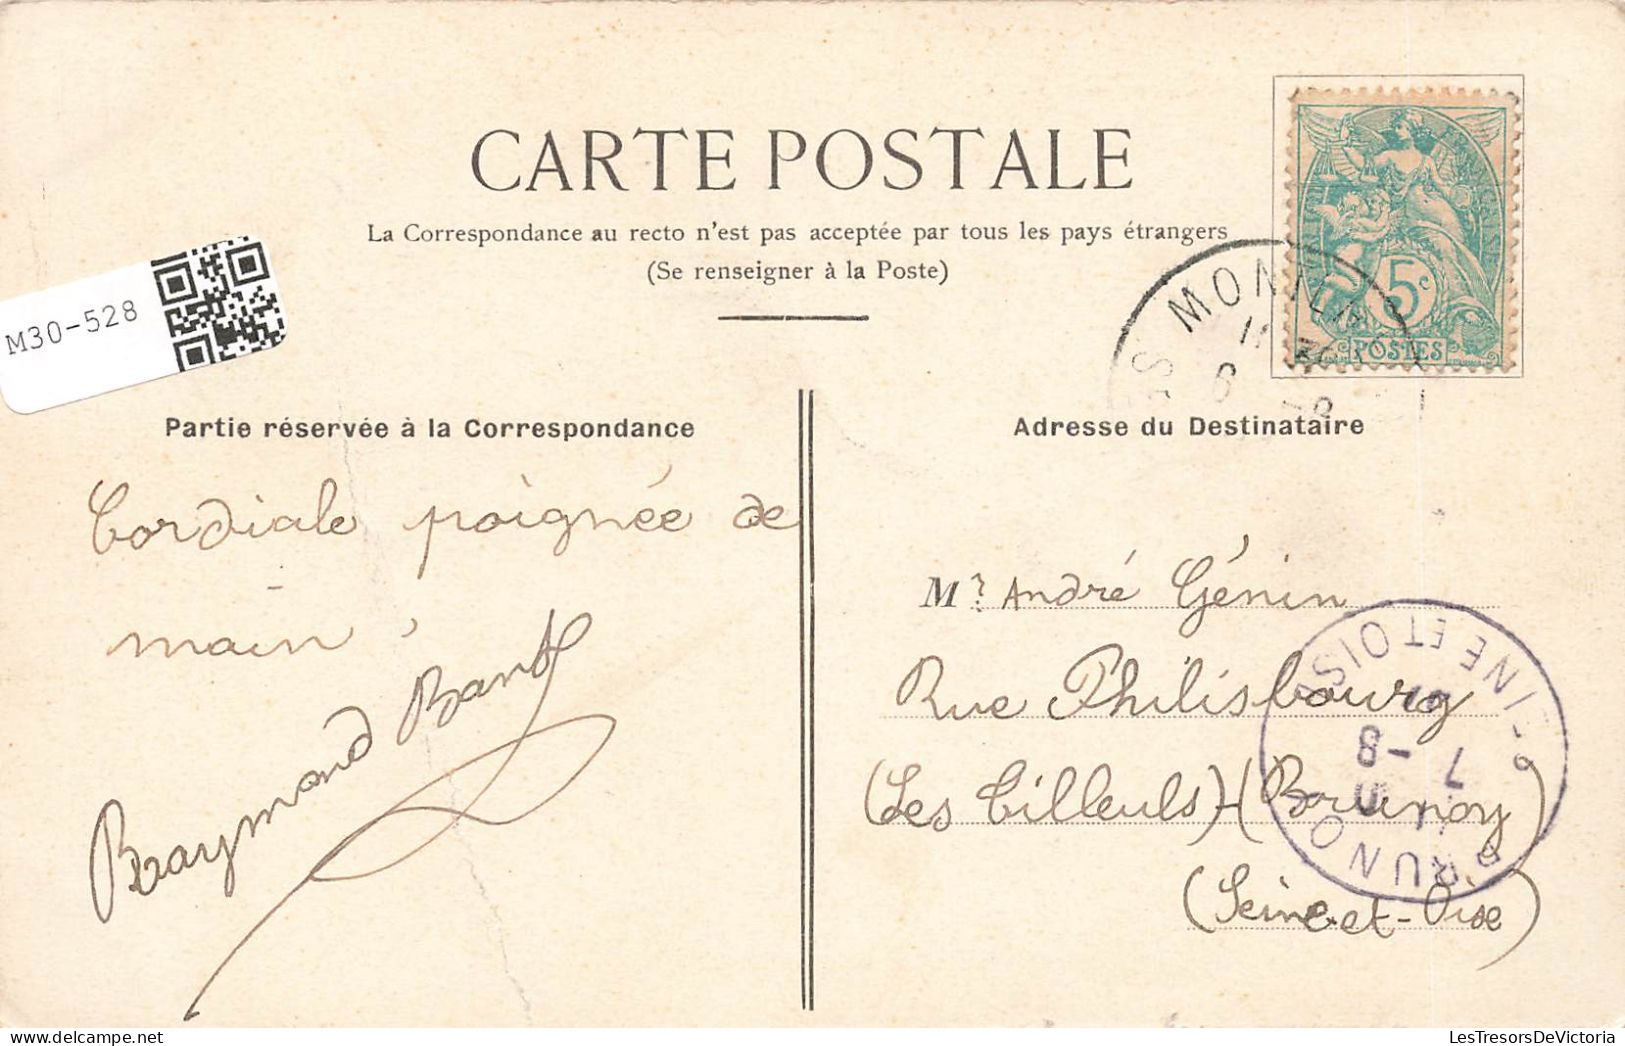 CARTE POSTALE
La Correspondance au recto n'est pas acceptée par tous les pays étrangers
(Se renseigner à la Poste)
M30-528
5c
POSTES
Partie réservée à la Correspondance
Cordiale poignée de
main,
Raymond
Adresse du Destinataire
Mr André Génin
Rue Philisbourg
(Les Tilleuls)-(Brunoy)
(Seine-et-Oise)
SEINE ET OISE
7 -8
BRUNOY
LesTresorsDeVictoria